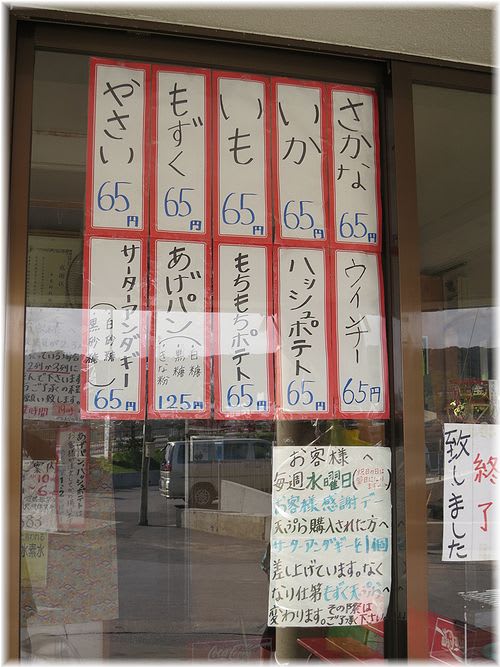 さかな
65円
いか
65円
いも
65円
もずく
65円
やさい
65円
ウインナー
65円
ハッシュポテト
65円
もちもちポテト
65円
あげパン(白糖
黒糖
きな粉
125円
サーターアンダギー
(白砂糖
黒砂糖)
65円
お客様へ
毎週水曜日
お客様感謝デー
天ぷら購入された方へ
サーターアンダギーを1個
差し上げています。なく
なり仕第もずく天ぷらへ
変わります。その際は
ご了承下さい
終了
致しました